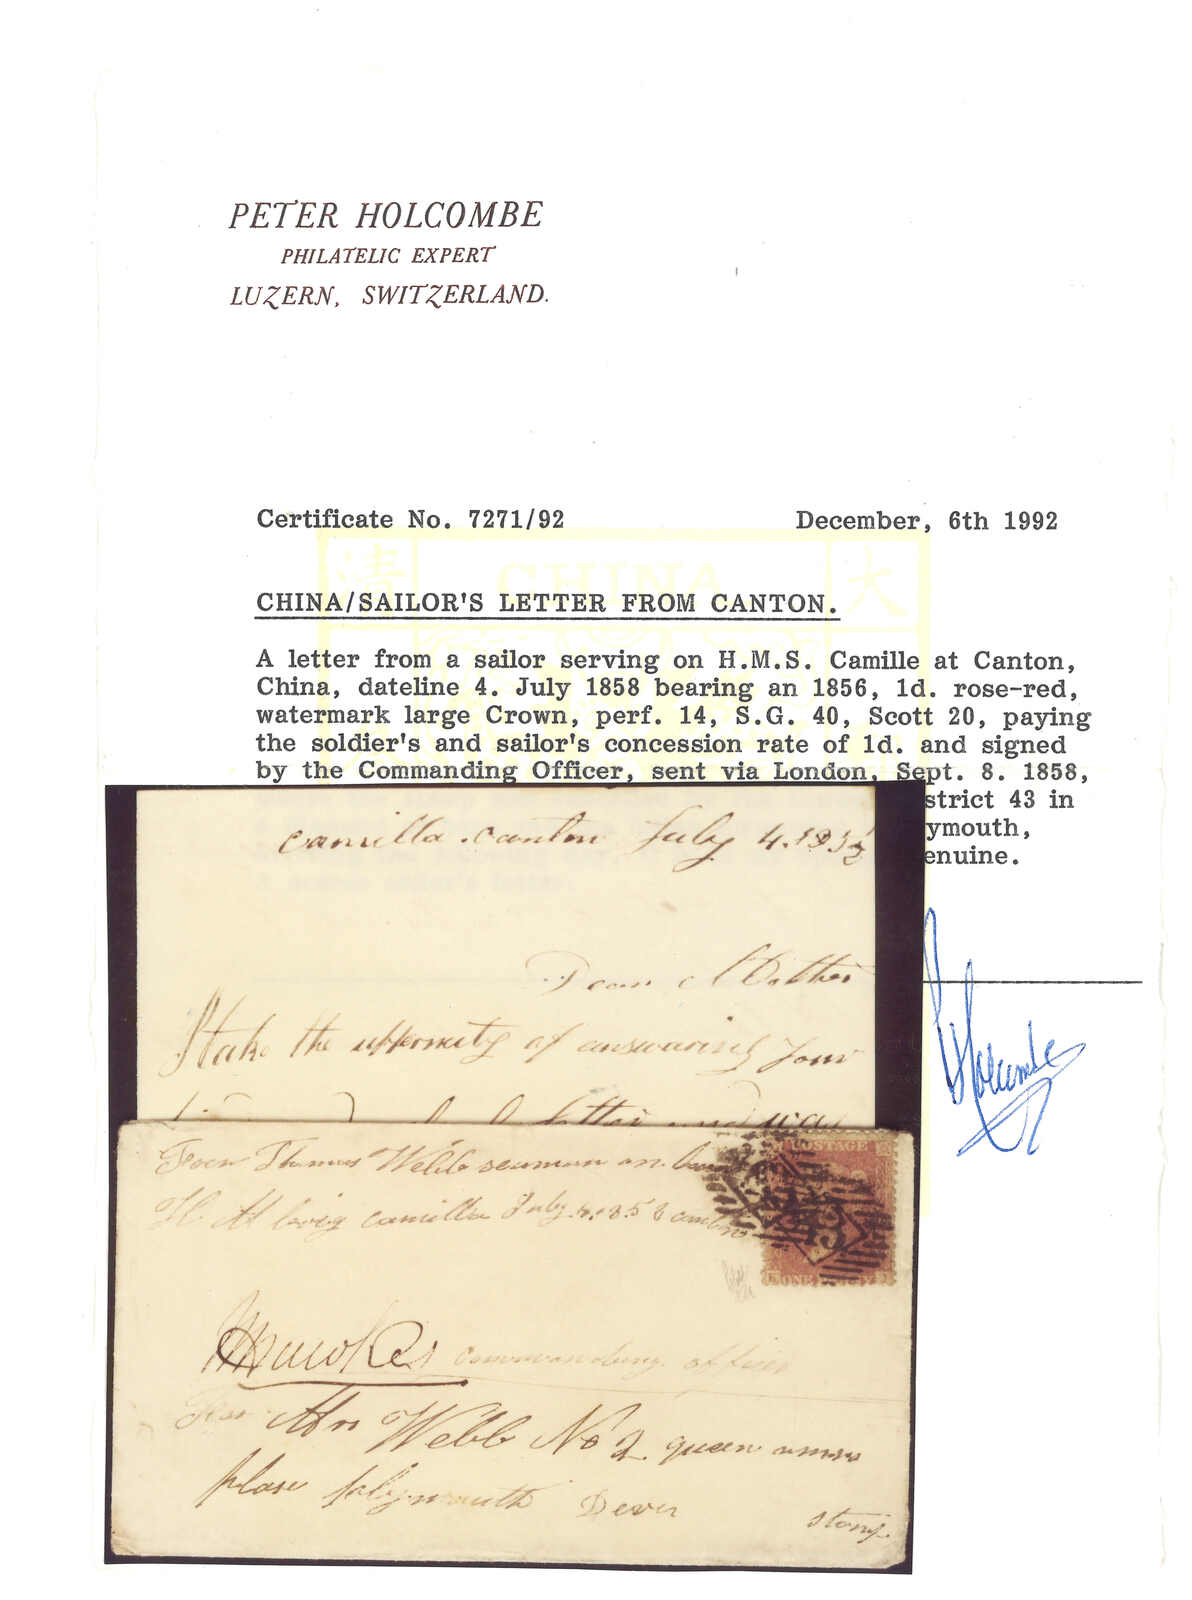 PETER HOLCOMBE
PHILATELIC EXPERT
LUZERN, SWITZERLAND.
Certificate No. 7271/92 December, 6th 1992
清 CHINA 大
CHINA/SAILOR'S LETTER FROM CANTON.
A letter from a sailor serving on H.M.S. Camille at Canton,
China, dateline 4. July 1858 bearing an 1856, 1d. rose-red,
watermark large Crown, perf. 14, S.G. 40, Scott 20, paying
the soldier's and sailor's concession rate of 1d. and signed
by the Commanding Officer, sent via London, Sept. 8. 1858,
strict 43 in
ymouth,
enuine.
Holcombe
Camilla Canton July 4. 185
Dear Mother
I take the oppornity of answaring your
letter and was
From Thomas Webb seaman on board
H. M brig camilla July 4. 1858 canton
POSTAGE
43
ONE PENNY
Hawkes commanding officer
For Mrs Webb No 2 queen
plase Plymouth Devn